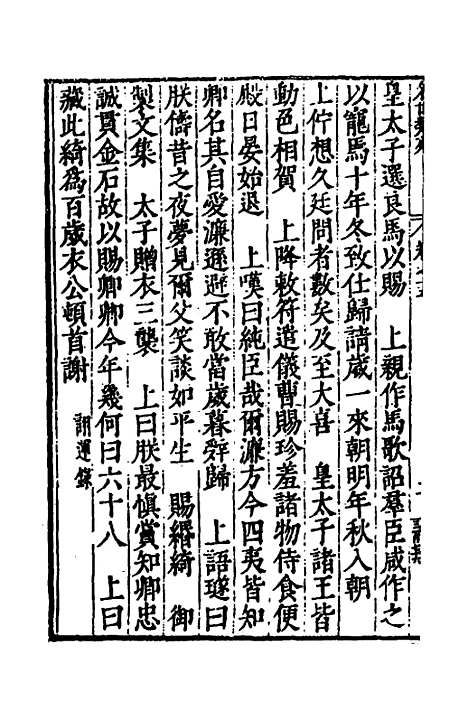 皇太子選良馬以賜　上親作馬歌詔羣臣咸作之
以寵焉十年冬致仕歸請歲一來朝明年秋入朝
上佇想久廷問者數矣及至大喜　皇太子諸王皆
動色相賀　上降敕符遣儀曹賜珍羞諸物侍食便
殿日晏始退　上嘆曰純臣哉爾濂方今四夷皆知
卿名其自愛濂遜避不敢當歲暮辭歸　上語璲曰
朕儔昔之夜夢見爾父笑談如平生　賜緡綺　御
製文集　太子贈衣三襲　上曰朕最慎賞知卿忠
誠貫金石故以賜卿卿今年幾何曰六十八　上曰
藏此綺爲百歲衣公頓首謝　翊運錄